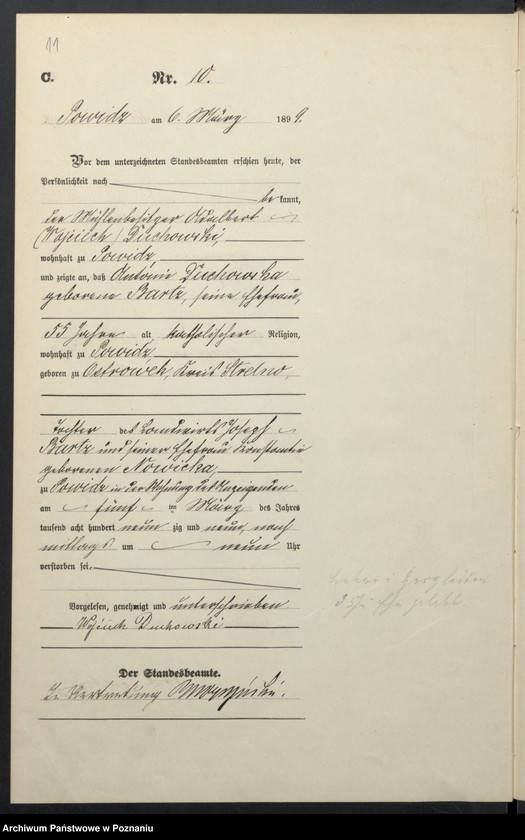 11
C.
Nr. 10.
Powidz am 6. März 1899.
Vor dem unterzeichneten Standesbeamten erschien heute, der
Persönlichkeit nach
be kannt,
der Mühlenbesitzer Adalbert
(Wojciech) Duchowski,
wohnhaft zu Powidz,
und zeigte an, daß Antonie Duchowska
geborene Bartz, seine Ehefrau,
55 Jahre alt, katholischer Religion,
wohnhaft zu Powidz
geboren zu Ostrowek, Kreis Strelno,
Tochter des Landwirts Joseph
Bartz und seiner Ehefrau Konstantia
geborenen Nowicka,
zu Powidz in der Wohnung des Anzeigenden
am fünf ten März des Jahres
tausend acht hundert neun zig und neun, nach
mittags um neun Uhr
verstorben sei.
Vorgelesen, genehmigt und unterschrieben
Wojciech Duchowski
Der Standesbeamte.
In Vertretung
Archiwum Państwowe w Poznaniu